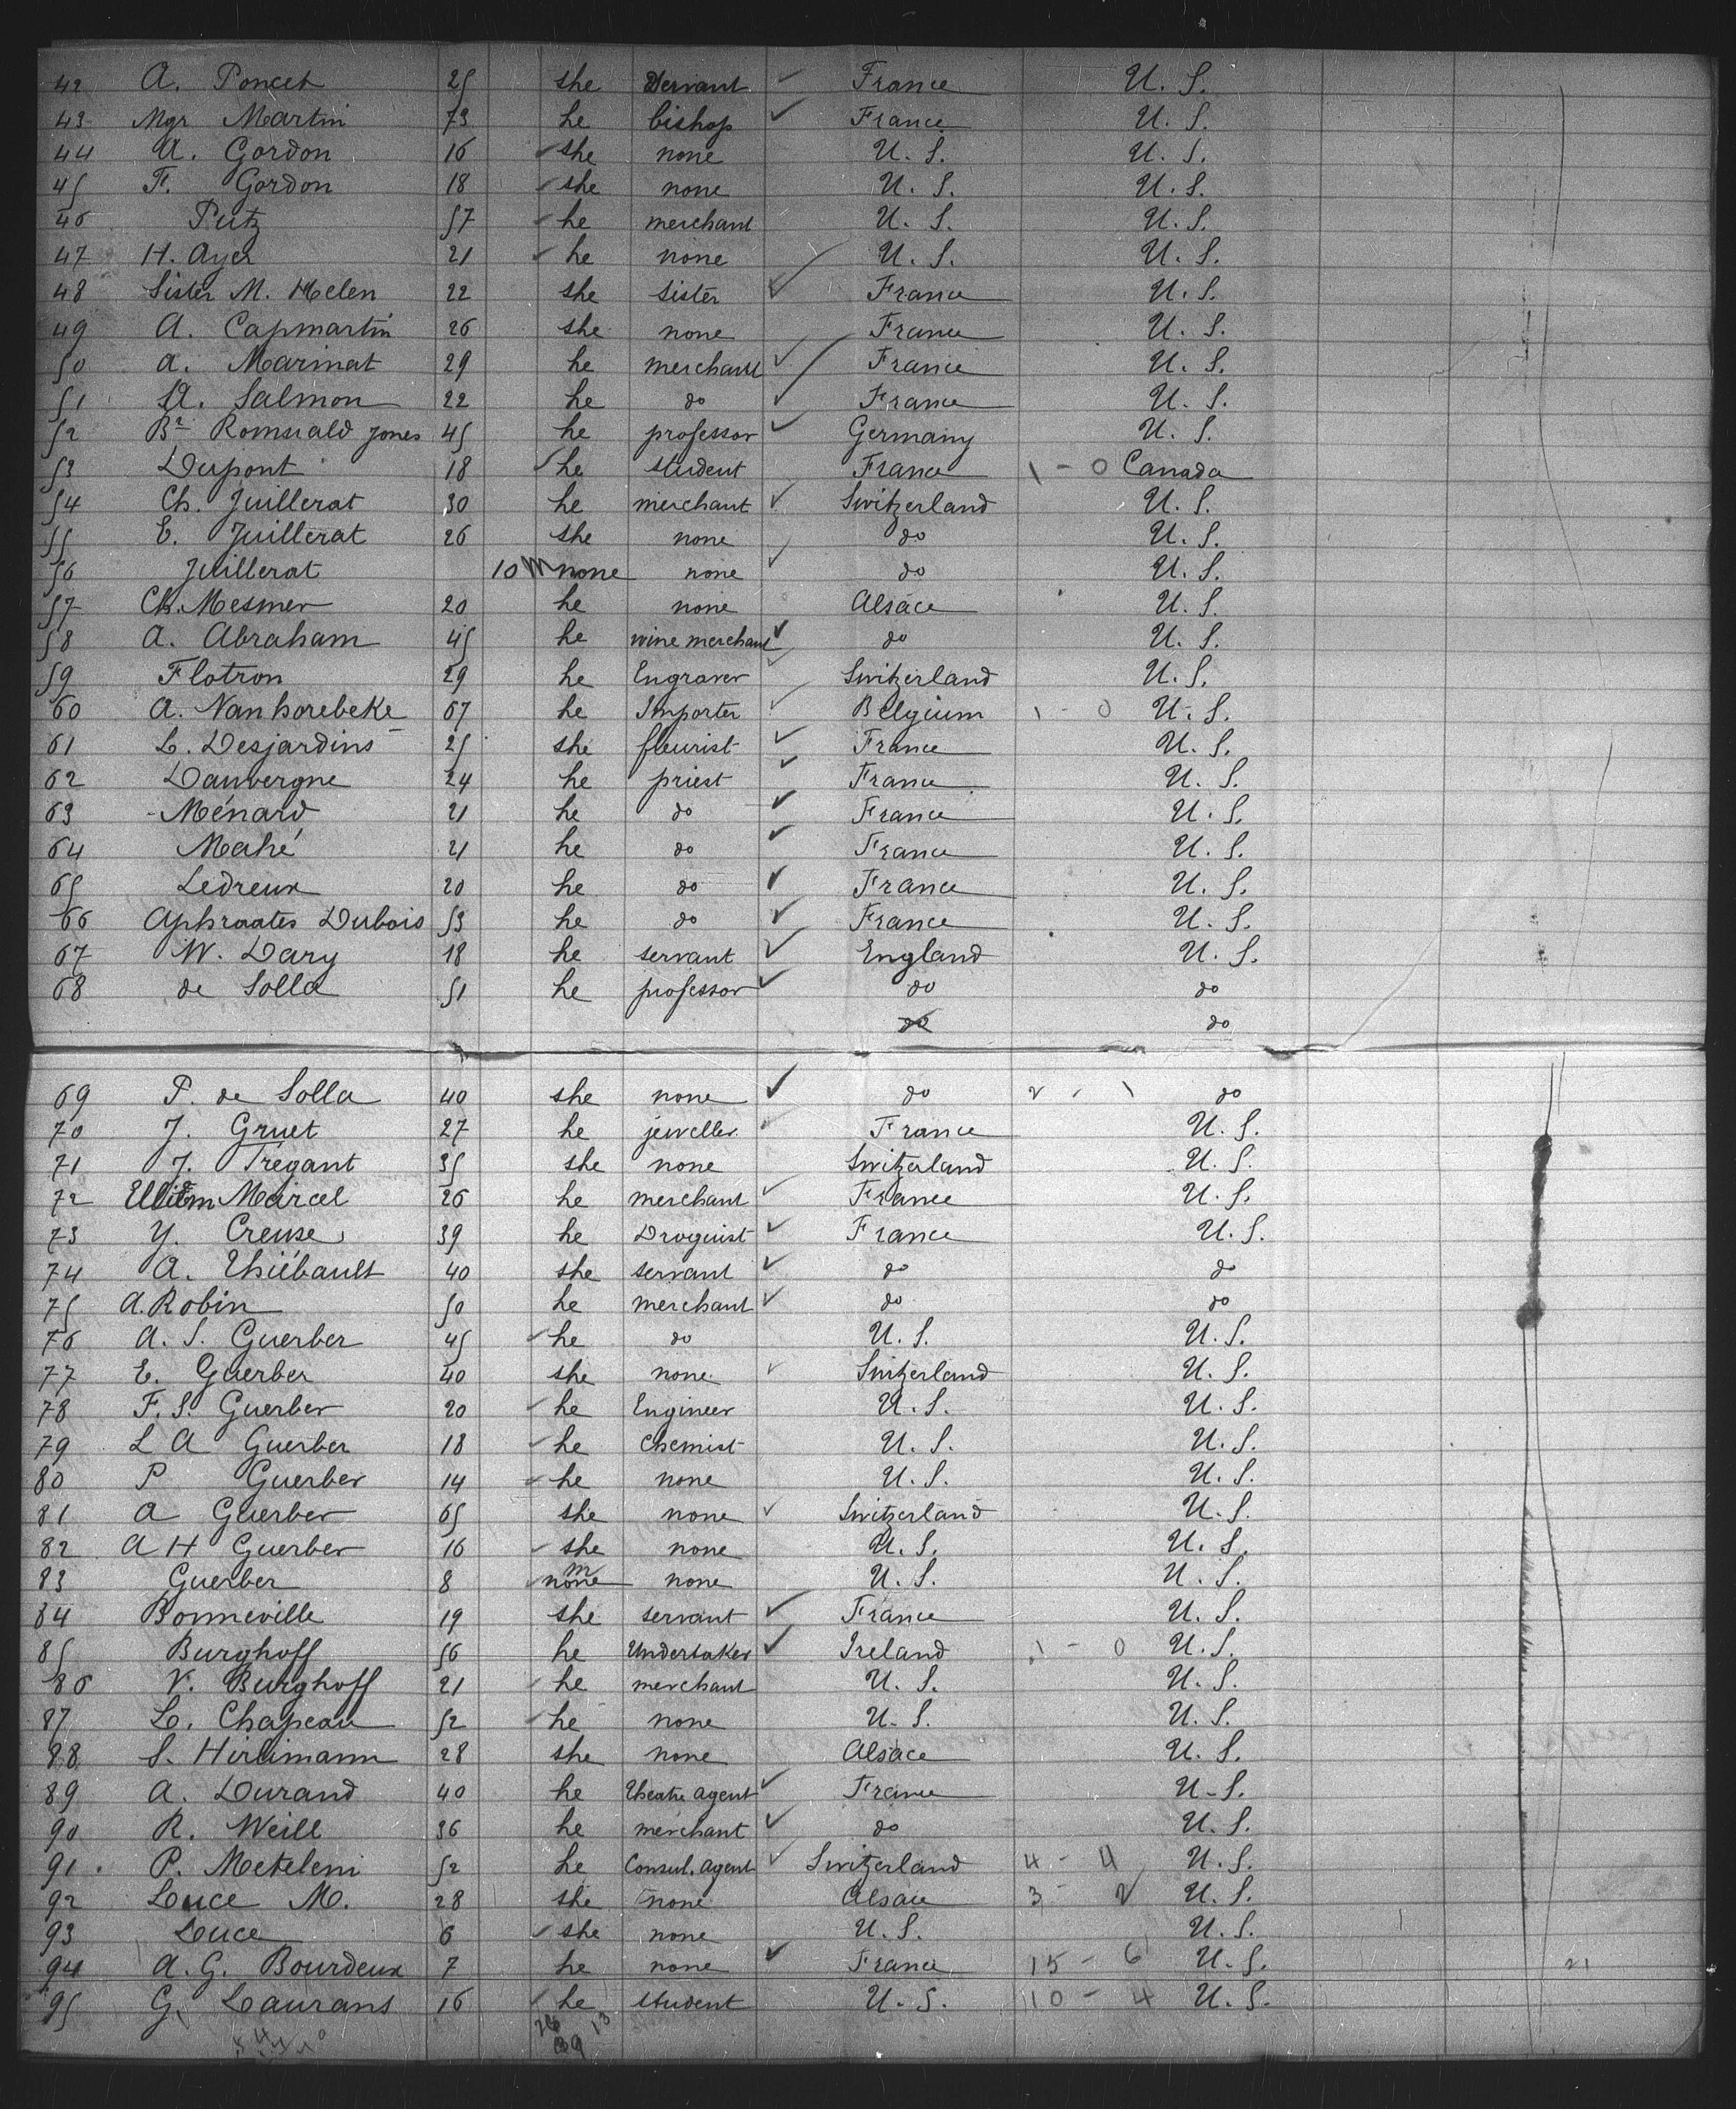 42 A. Poncet 25 she servant ✓ France U. S.
43 Mgr Martin 73 he bishop ✓ France U. S.
44 A. Gordon 16 ✓ she none U. S. U. S.
45 F. Gordon 18 ✓ she none U. S. U. S.
46 Putz 57 ✓ he merchant U. S. U. S.
47 H. Ayer 21 ✓ he none U. S. U. S.
48 Sister M. Helen 22 she sister ✓ France U. S.
49 A. Capmartin 26 she none France U. S.
50 A. Marinat 29 he merchant ✓ France U. S.
51 A. Salmon 22 he do ✓ France U. S.
52 Br Romuald Jones 45 he professor ✓ Germany U. S.
53 Dupont 18 ✓ he student France 1 - 0 Canada
54 Ch. Juillerat 30 he merchant ✓ Switzerland U. S.
55 E. Juillerat 26 she none ✓ do U. S.
56 Juillerat 10 m none none ✓ do U. S.
57 Ch. Mesmer 20 he none Alsace U. S.
58 A. Abraham 45 he wine merchant ✓ do U. S.
59 Flotron 29 he Engraver ✓ Switzerland U. S.
60 A. Vanhorebeke 67 he Importer ✓ Belgium 1 - 0 U. S.
61 L. Desjardins 25 she fleurist ✓ France U. S.
62 Dauvergne 24 he priest ✓ France U. S.
63 Ménard 21 he do ✓ France U. S.
64 Mahé 21 he do ✓ France U. S.
65 Ledreux 20 he do ✓ France U. S.
66 Aphraates Dubois 53 he do ✓ France U. S.
67 W. Dary 18 he servant ✓ England U. S.
68 de Solla 51 he professor ✓ do do
do do
69 P. de Solla 40 she none ✓ do 2 - 1 do
70 J. Gruet 27 he jeweller ✓ France U. S.
71 J. Tregant 35 she none Switzerland U. S.
72 Marcel 26 he merchant ✓ France U. S.
73 Y. Creuse 39 he Droguist ✓ France U. S.
74 A. Thiébault 40 she servant ✓ do do
75 A. Robin 50 he merchant ✓ do do
76 A. S. Guerber 45 ✓ he do U. S. U. S.
77 E. Guerber 40 she none ✓ Switzerland U. S.
78 F. S. Guerber 20 ✓ he Engineer U. S. U. S.
79 L A Guerber 18 ✓ he chemist U. S. U. S.
80 P Guerber 14 ✓ he none U. S. U. S.
81 A Guerber 65 she none ✓ Switzerland U. S.
82 A H Guerber 16 ✓ she none U. S. U. S.
83 Guerber 8 ✓ none m none U. S. U. S.
84 Bonneville 19 she servant ✓ France U. S.
85 Burghoff 56 he Undertaker ✓ Ireland 1 - 0 U. S.
86 V. Burghoff 21 ✓ he merchant U. S. U. S.
87 L. Chapeau 52 ✓ he none U. S. U. S.
88 S. Hirlimann 28 she none Alsace U. S.
89 A. Durand 40 he theatre agent ✓ France U. S.
90 R. Weill 36 he merchant ✓ do U. S.
91 P. Meteleni 52 he Consul. agent ✓ Switzerland 4 - 4 U. S.
92 Luce M. 28 she none Alsace 3 - 2 U. S.
93 Luce 6 ✓ she none U. S. U. S.
94 A. G. Bourdeux 7 he none ✓ France 15 - 6 U. S. 21
95 G. Laurans 16 ✓ he student U. S. 10 - 4 U. S.
26 13
39